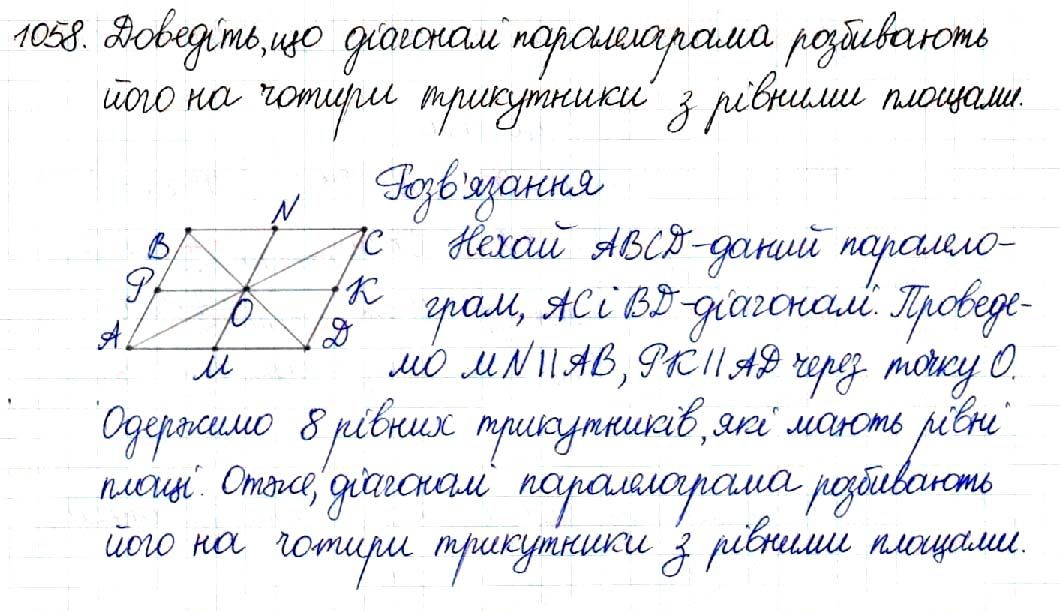 1058. Доведіть, що діагоналі паралелограма розбивають
його на чотири трикутники з рівними площами.
Розв'язання
N
B
C
P
K
O
A
D
M
Нехай ABCD-даний паралело-
грам, AC і BD-діагоналі. Проведе-
мо MN || AB, PK || AD через точку O.
Одержимо 8 рівних трикутників, які мають рівні
площі. Отже, діагоналі паралелограма розбивають
його на чотири трикутники з рівними площами.